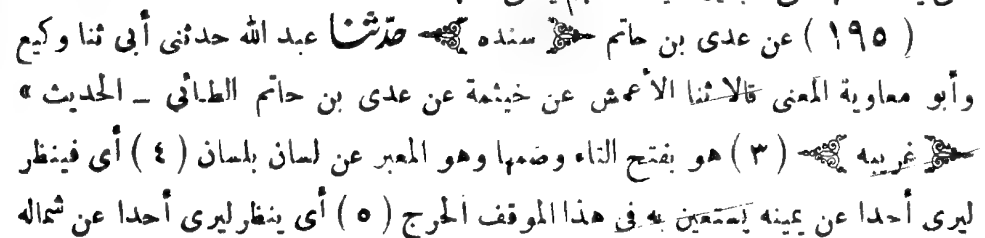 ( ١٩٥ ) عن عدى بن حاتم سنده حدّثنا عبد الله حدثنى أبى ثنا وكيع
وأبو معاوية المعنى قالا ثنا الأعمش عن خيثمة عن عدى بن حاتم الطائي ــ الحديث »
غريبه ( ٣ ) هو بفتح التاء وضمها وهو المعبر عن لسان بلسان ( ٤ ) أى فينظر
ليرى أحدا عن يمينه يستعين به فى هذا الموقف الحرج ( ٥ ) أى ينظر ليرى أحدا عن شماله